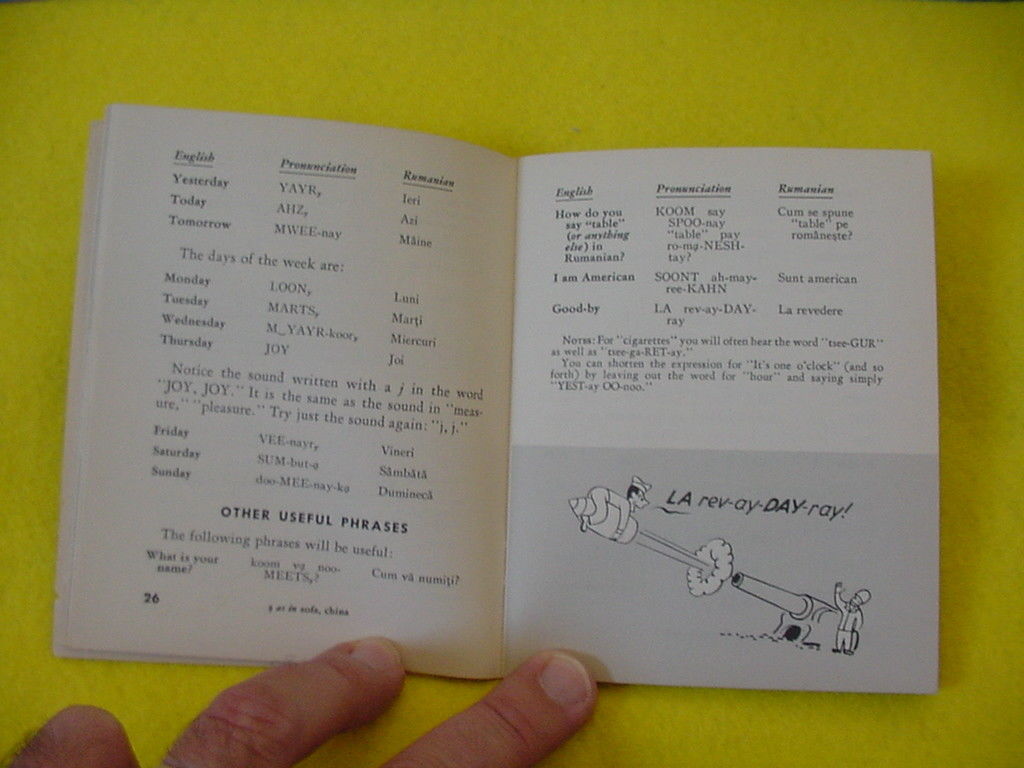 English Pronunciation Rumanian
Yesterday YAYR, Ieri
Today AHZ, Azi
Tomorrow MWEE-nay Mâine
The days of the week are:
Monday LOON, Luni
Tuesday MARTS, Marți
Wednesday M_YAYR-koor, Miercuri
Thursday JOY Joi
Notice the sound written with a j in the word
"JOY, JOY." It is the same as the sound in "meas-
ure," "pleasure." Try just the sound again: "j, j."
Friday VEE-nayr, Vineri
Saturday SUM-but-ạ Sâmbătă
Sunday doo-MEE-nay-kạ Duminecă
OTHER USEFUL PHRASES
The following phrases will be useful:
What is your koom vạ noo- Cum vă numiți?
name? MEETS,?
26
ạ as in sofa, china
English Pronunciation Rumanian
How do you KOOM say Cum se spune
say "table" SPOO-nay "table" pe
(or anything "table" pay românește?
else) in ro-mạ-NESH-
Rumanian? tay?
I am American SOONT ah-may- Sunt american
ree-KAHN
Good-by LA rev-ay-DAY- La revedere
ray
NOTES: For "cigarettes" you will often hear the word "tsee-GUR"
as well as "tsee-ga-RET-ay."
You can shorten the expression for "It's one o'clock" (and so
forth) by leaving out the word for "hour" and saying simply
"YEST-ay OO-noo."
LA rev-ay-DAY-ray!